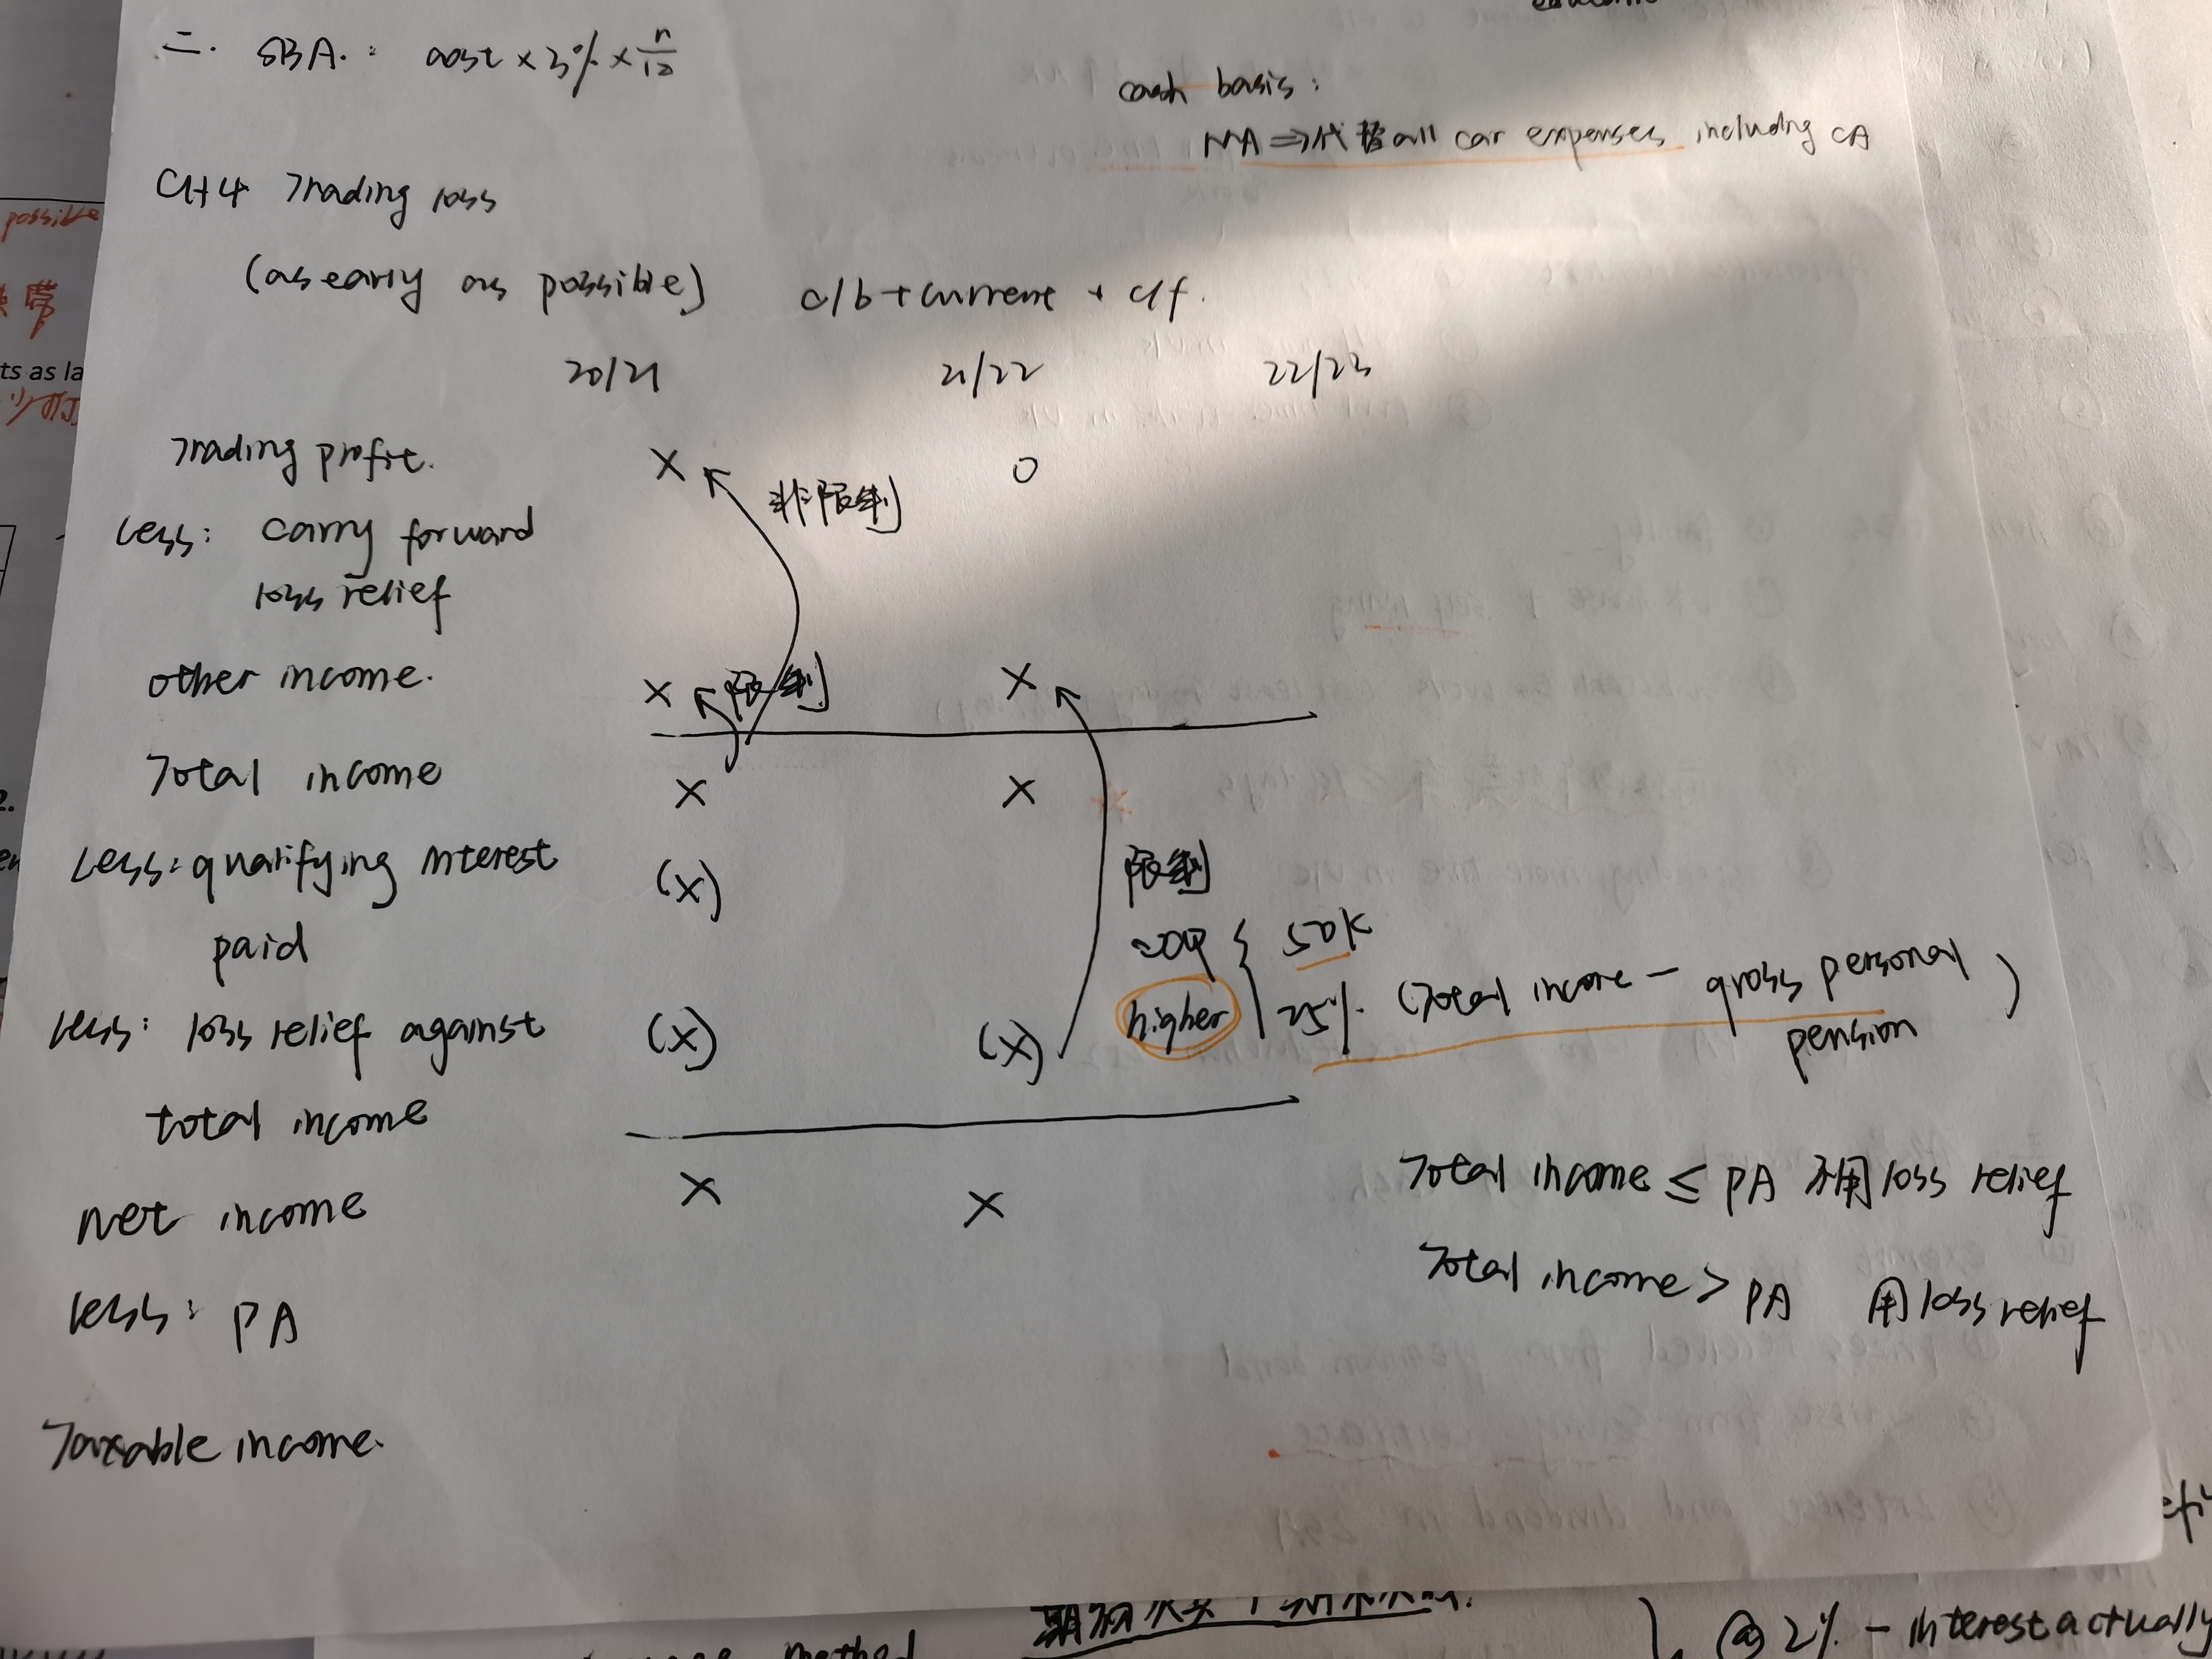 二. SBA.: cost × 3% × n/12
cash basis:
MA ⇒ 代替 all car expenses including CA
CH4 Trading loss
(as early as possible) c/b + current + c/f.
20/21 21/22 22/23
Trading profit. X 0
非限制
Less: carry forward
loss relief
other income. X 限制 X
Total income X X
Less: qualifying interest (X)
paid
限制
higher { 50k
25% (Total income - gross personal pension)
Less: loss relief against (X) (X)
total income
Net income X X
Total income ≤ PA 不用 loss relief
Total income > PA 用 loss relief
Less: PA
Taxable income.
possible
ts as la
2.
method
@ 2% - interest actually